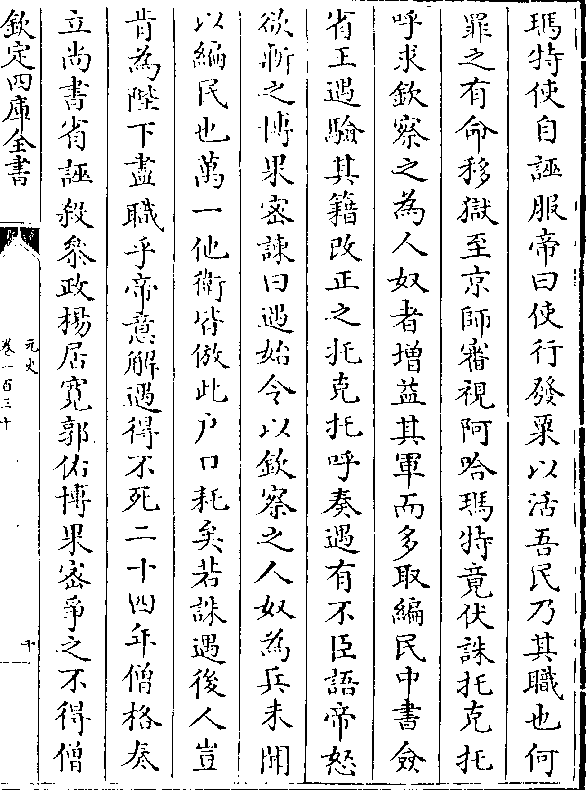 瑪特使自誣服帝曰使行發粟以活吾民乃其職也何
罪之有命移獄至京師審視阿哈瑪特竟伏誅托克托
呼求欽察之為人奴者增益其軍而多取編民中書僉
省王遇驗其籍改正之托克托呼奏遇有不臣語帝怒
欲斬之博果密諫曰遇始令以欽察之人奴為兵未聞
以編民也萬一他衛皆倣此户口耗矣若誅遇後人豈
肯為陛下盡職乎帝意解遇得不死二十四年僧格奏
立尚書省誣殺叅政楊居寛郭佑博果密爭之不得僧
欽定四庫全書
元史
卷一百三十
十